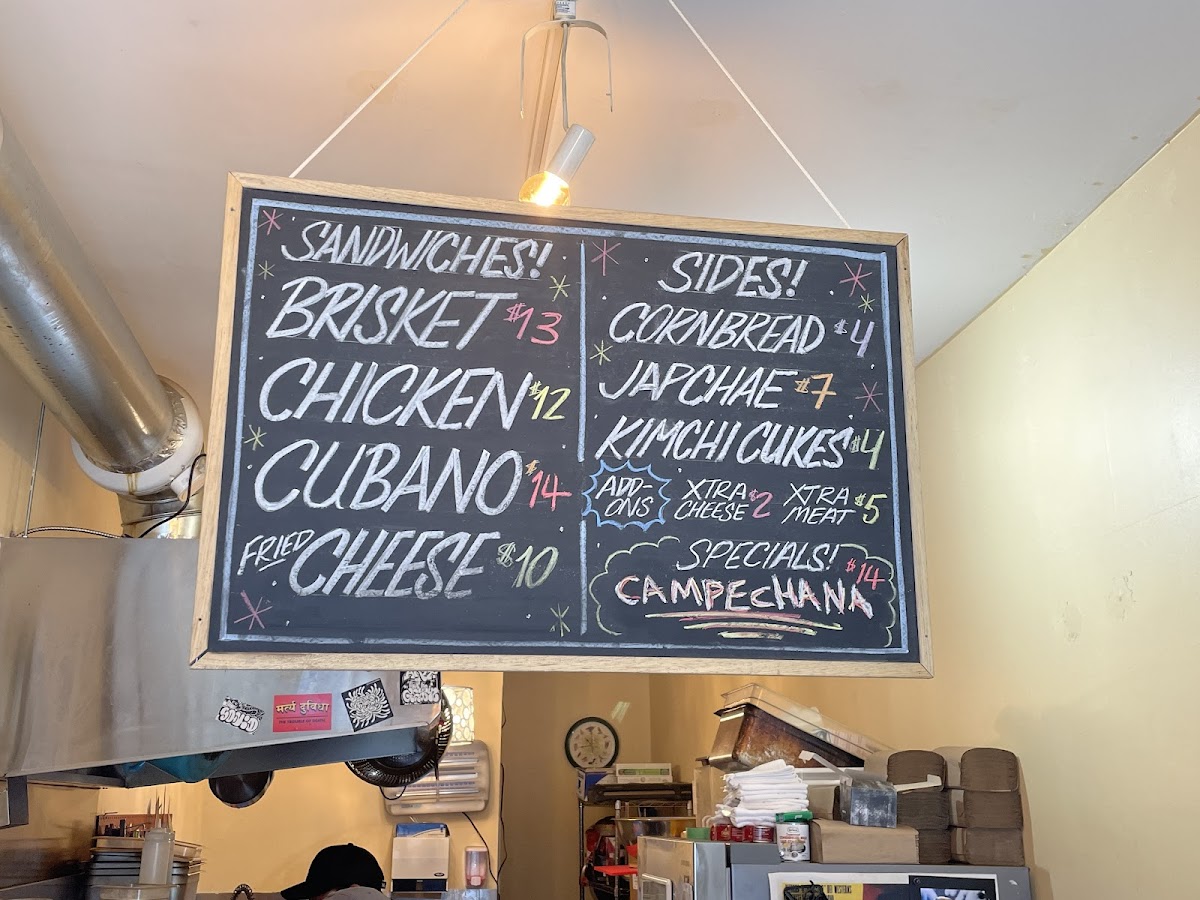 SANDWICHES!
BRISKET $13
CHICKEN $12
CUBANO $14
FRIED CHEESE $10
SIDES!
CORNBREAD $4
JAPCHAE $7
KIMCHI CUKES $4
ADD-
ONS
XTRA
CHEESE $2
XTRA
MEAT $5
SPECIALS!
CAMPECHANA $14
मर्त्य दुविधा